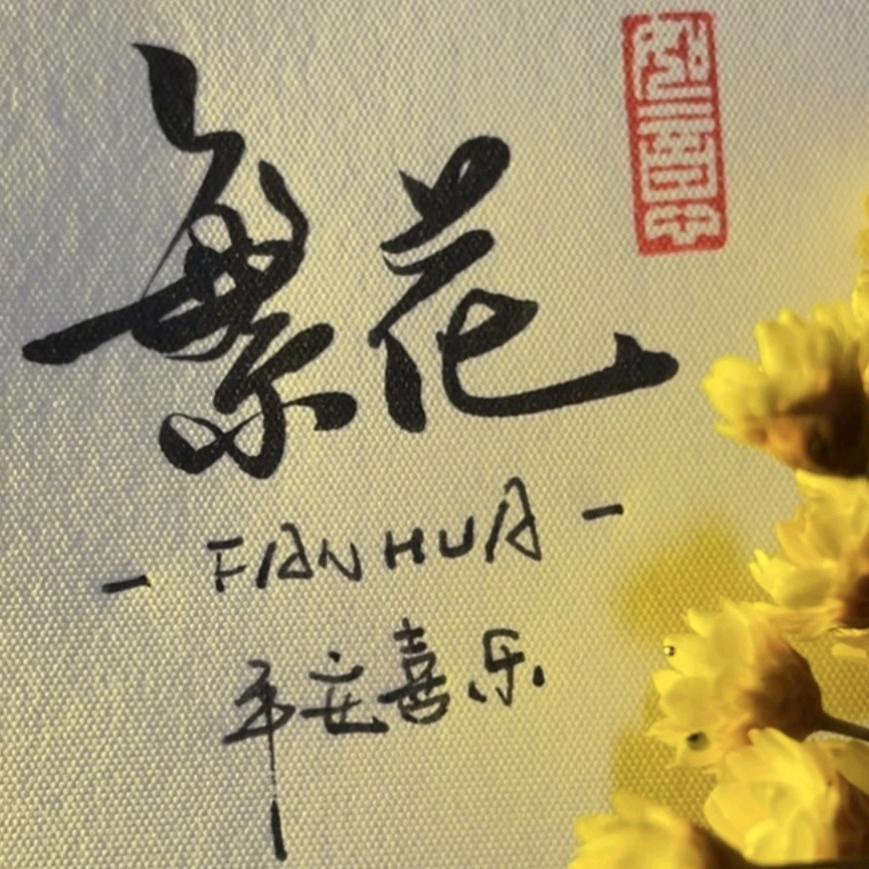 繁花
- FANHUA -
平安喜乐